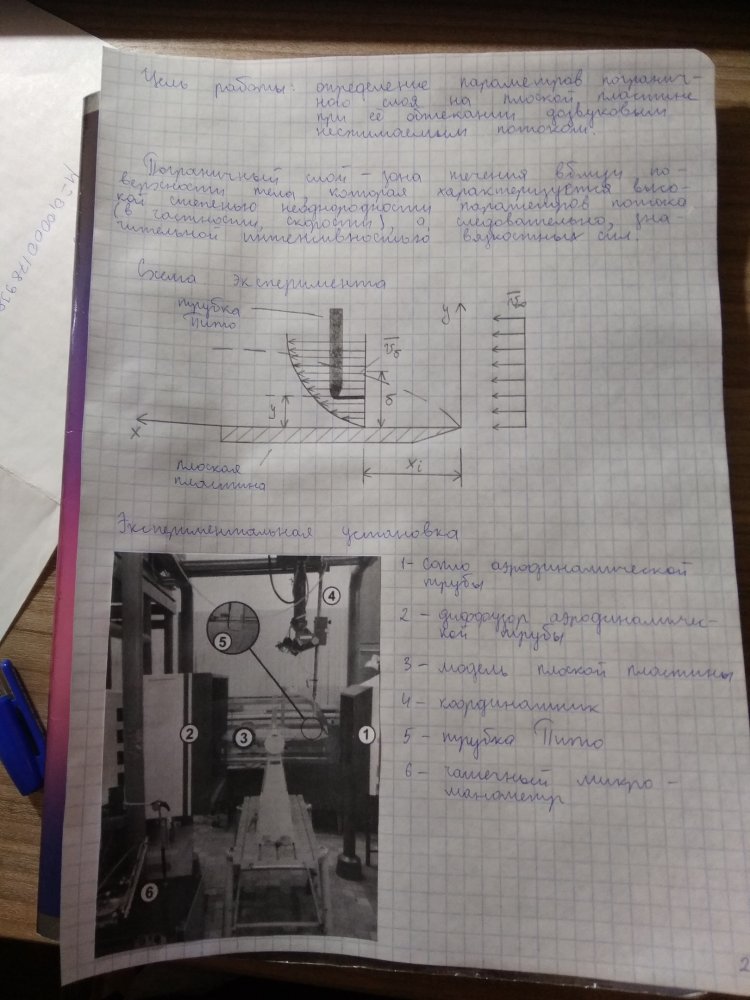 Цель работы: определение параметров погранич-
ного слоя на плоской пластине
при её обтекании дозвуковым
несжимаемым потоком.
Пограничный слой - зона течения вблизи по-
верхности тела, которая характеризуется высо-
кой степенью неоднородности параметров потока
(в частности, скорости), а, следовательно, зна-
чительной интенсивностью вязкостных сил.
Схема эксперимента
трубка
Пито
y
V∞
Vδ
y
δ
x
xi
плоская
пластина
Экспериментальная установка
1- сопло аэродинамической
трубы
2 - диффузор аэродинамичес-
кой трубы
3 - модель плоской пластины
4 - координатник
5 - трубка Пито
6 - чашечный микро-
манометр
4
5
2
3
1
6
2